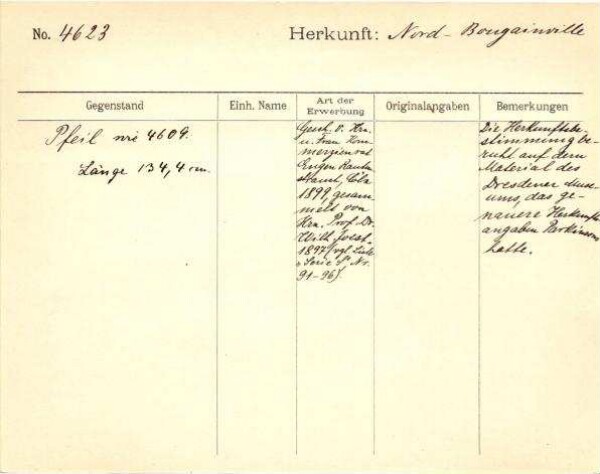 No. 4623
Herkunft: Nord-Bougainville
Gegenstand
Einh. Name
Art der
Erwerbung
Originalangaben
Bemerkungen
Pfeil wie 4609.
Länge 134,4 cm.
Gesch. v. Hrn.
u. Frau Kom-
merzienrat
Eugen Rauten-
strauch, Cöln
1899, gesam-
melt von
Hrn. Prof. Dr.
Wilh. Joest.
1897 (vgl.
Serie Nr.
91-96).
Die Herkunftsbe-
stimmung be-
ruht auf dem
Material des
Dresdener Muse-
ums, das ge-
nauere Herkunfts
angaben Parkinsons
hatte.